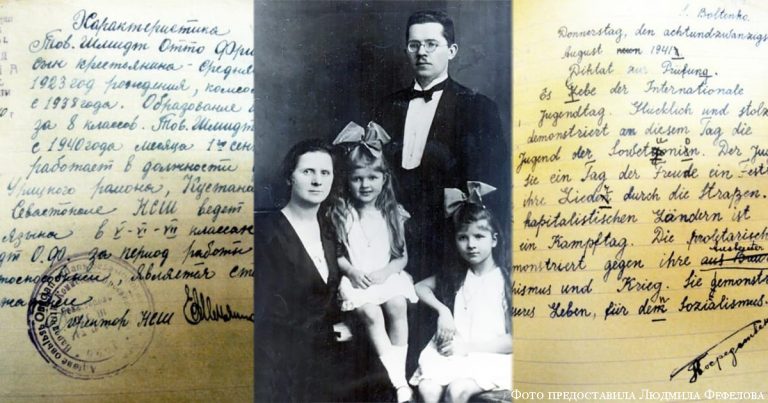 Характеристика
Тов. Шмидт Отто Фри
сын крестьянина - средня
1923 год рождения, комсо
с 1938 года. Образование
за 8 классов. Тов. Шмидт
с 1940 года месяца
работает в должности
Урицкого района, Кустана
Севастополе НСШ ведет
языка в V-VI-VII класса
дт О.Ф. за период работы
является
НСШ
Boltenko.
Donnerstag, den achtundzwanzigs
August 1941
Diktat zur Prüfung.
Es lebe der Internationale
Jugendtag. Glücklich und stolz
demonstriert an diesem Tag die
Jugend der Sowjetunion. Der Ju
sie ein Tag der Freude ein Fest
ihre Lieder durch die Straßen.
kapitalistischen Ländern ist
ein Kampftag. Die proletarisch
monstriert gegen ihre Ausbeuter
ismus und Krieg. Sie demonst
ures Leben, für den Sozialismus.
Посредственно
Фото предоставила Людмила Фефелова